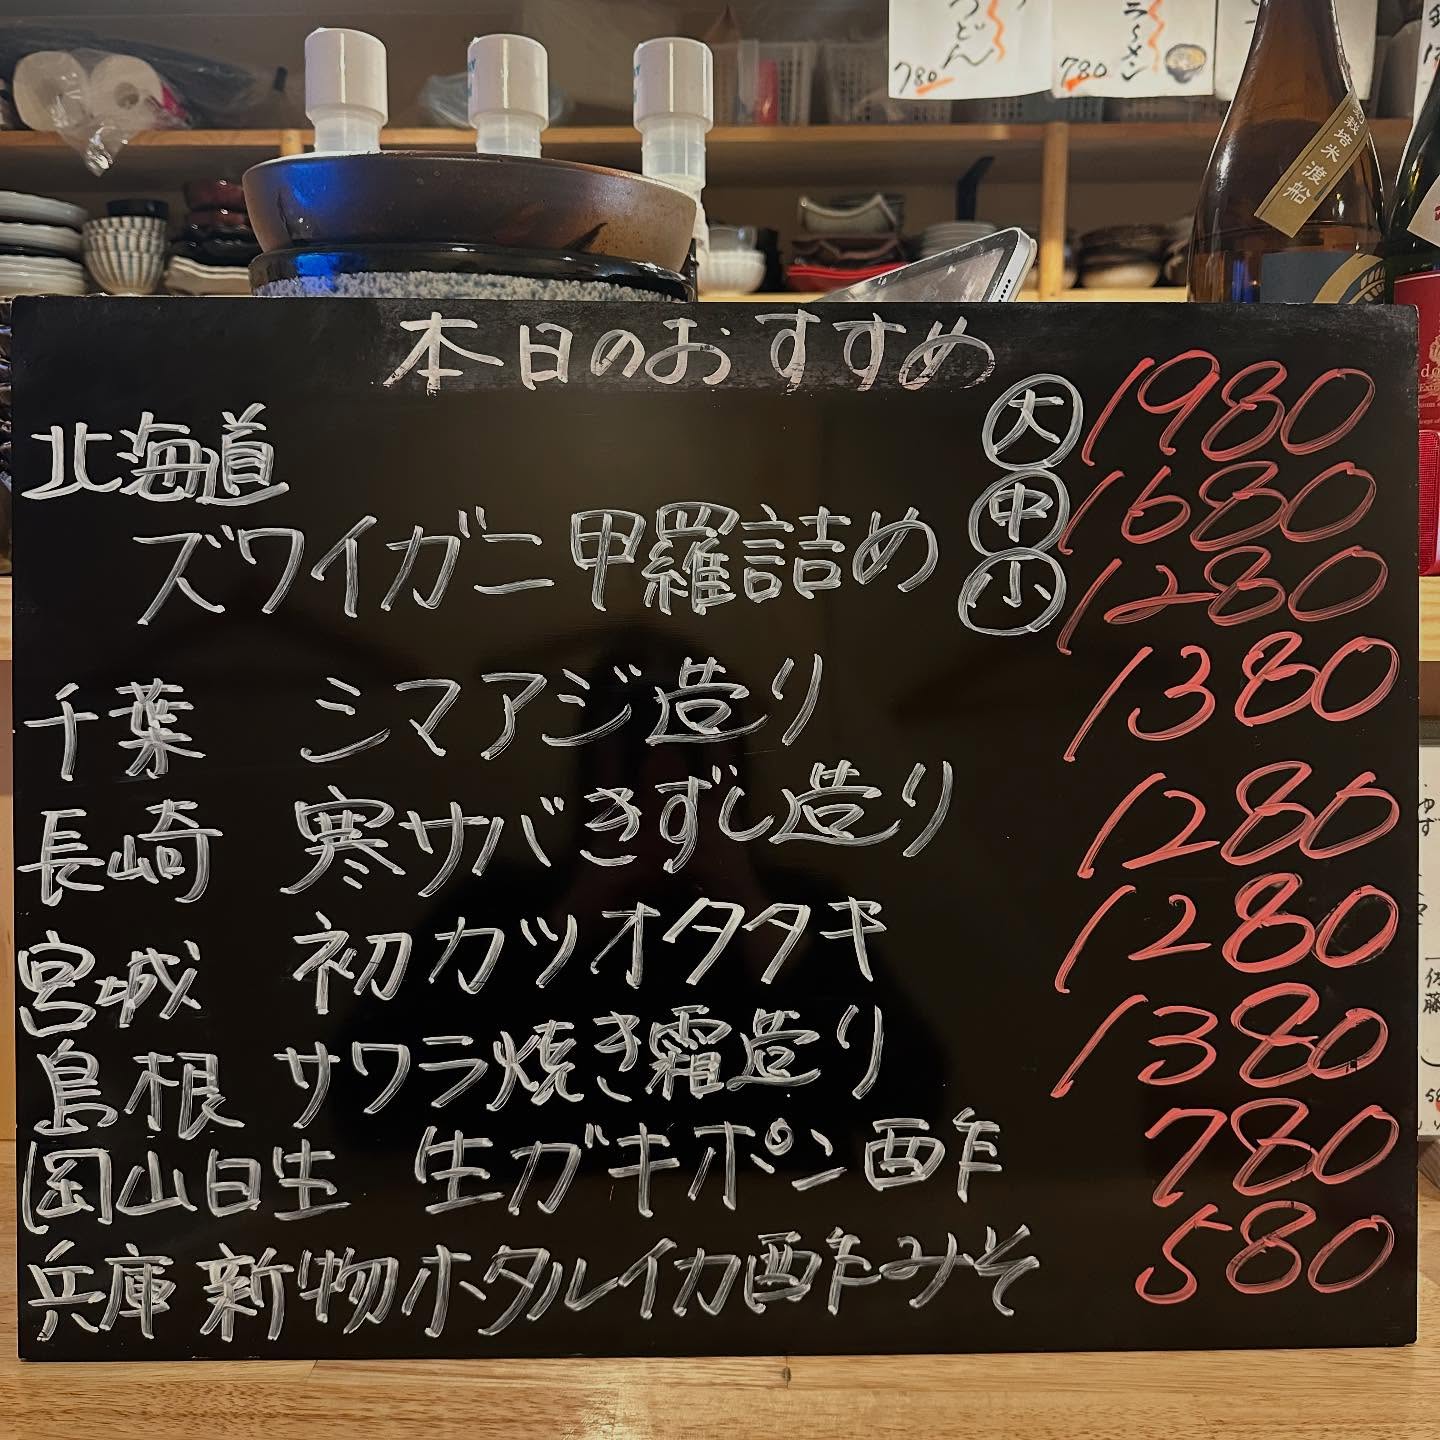 うどん
780
ラーメン
780
栽培米 渡船
本日のおすすめ
北海道
ズワイガニ甲羅詰め
大 1980
中 1680
小 1280
千葉 シマアジ造り 1380
長崎 寒サバきずし造り 1280
宮城 初カツオタタキ 1280
島根 サワラ焼き霜造り 1380
岡山日生 生ガキポン酢 780
兵庫 新物ホタルイカ酢みそ 580
ゆず
佐藤